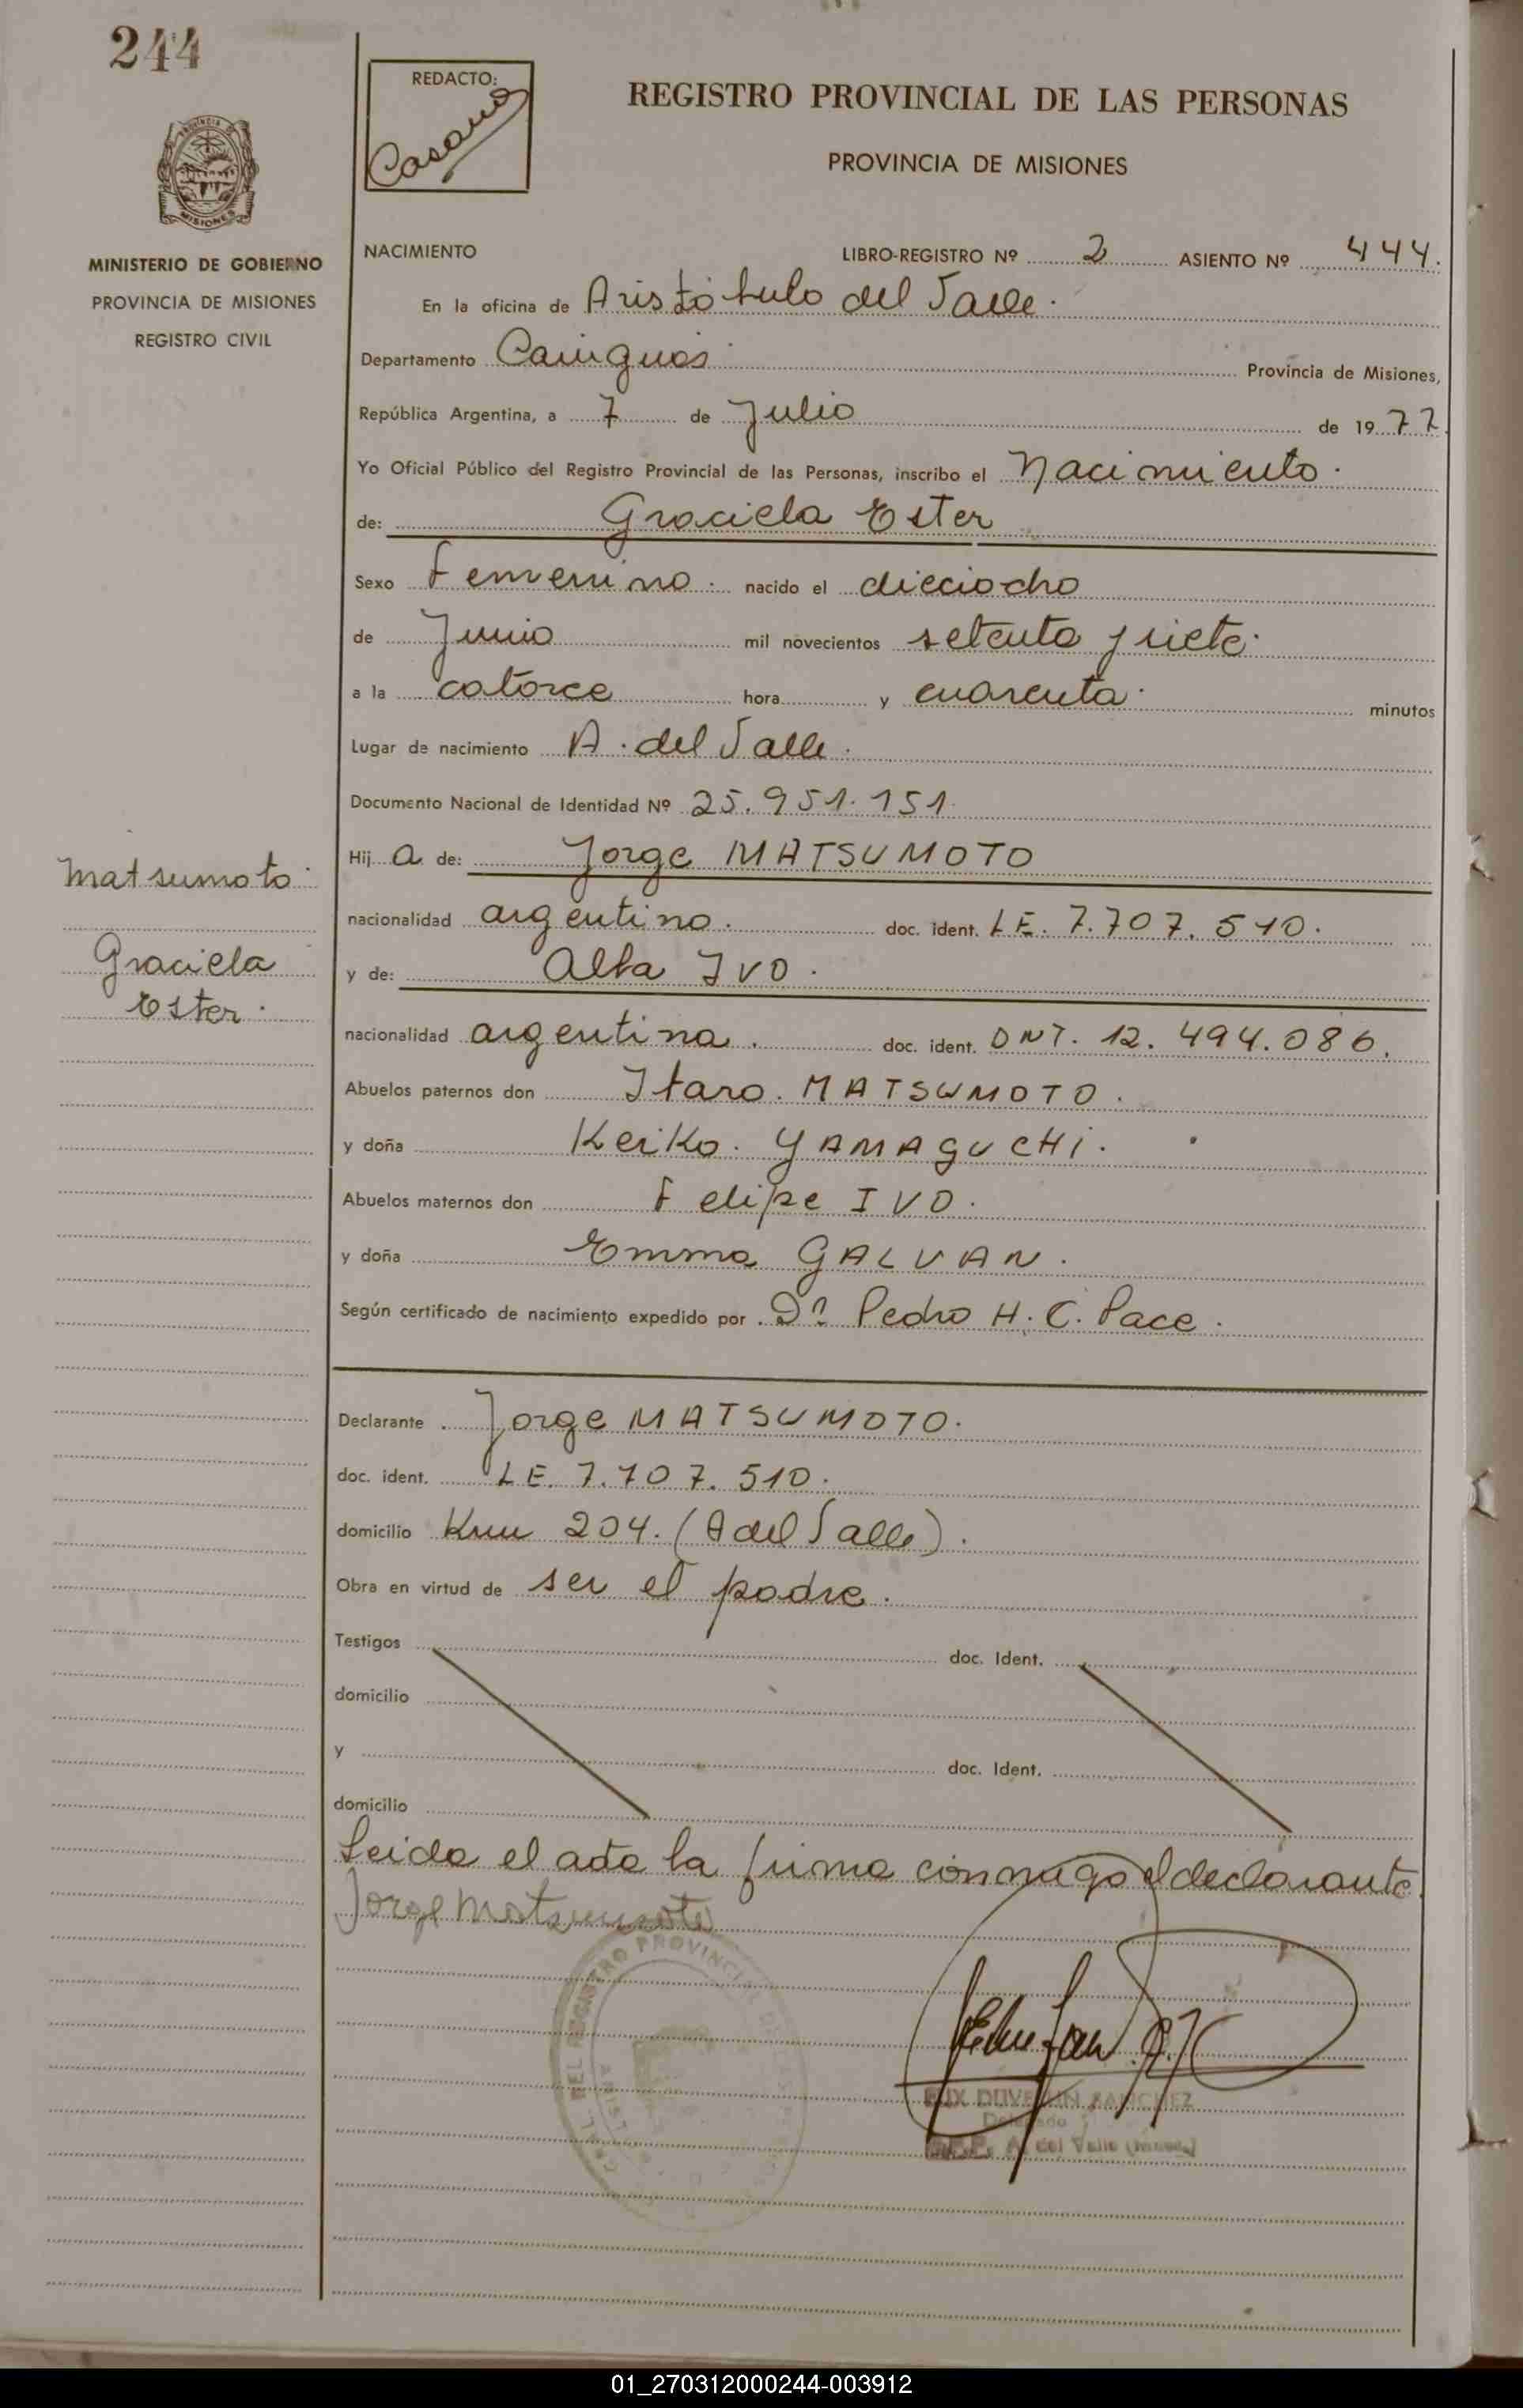 244
REDACTO:
Casano
REGISTRO PROVINCIAL DE LAS PERSONAS
PROVINCIA DE MISIONES
PROVINCIA DE
MISIONES
MINISTERIO DE GOBIERNO
PROVINCIA DE MISIONES
REGISTRO CIVIL
NACIMIENTO LIBRO-REGISTRO Nº 2 ASIENTO Nº 444.
En la oficina de Aristóbulo del Valle.
Departamento Cainguás Provincia de Misiones,
República Argentina, a 7 de Julio de 1977.
Yo Oficial Público del Registro Provincial de las Personas, inscribo el Nacimiento.
de: Graciela Ester
Sexo Femenino. nacido el dieciocho
de Junio mil novecientos setenta y siete.
a la catorce hora y cuarenta. minutos
Lugar de nacimiento A. del Valle.
Documento Nacional de Identidad Nº 25.951.151.
Hij a de: Jorge MATSUMOTO
nacionalidad argentino. doc. ident. LE. 7.707.510.
y de: Alba IVO.
nacionalidad argentina. doc. ident. DNI. 12.494.086.
Abuelos paternos don Itaro. MATSUMOTO.
y doña Keiko. YAMAGUCHi.
Abuelos maternos don Felipe IVO.
y doña Emma GALVAN.
Según certificado de nacimiento expedido por Dr. Pedro H. C. Pace.
Matsumoto
Graciela
Ester.
Declarante Jorge MATSUMOTO.
doc. ident. LE. 7.707.510.
domicilio Km 204. (A del Valle).
Obra en virtud de ser el padre.
Testigos doc. Ident.
domicilio
y doc. Ident.
domicilio
Leida el acta la firma conmigo el declarante.
Jorge Matsumoto
DEL REGISTRO PROVINCIAL DE LAS
SANCHEZ
Delegado
A. del Valle
01_270312000244-003912